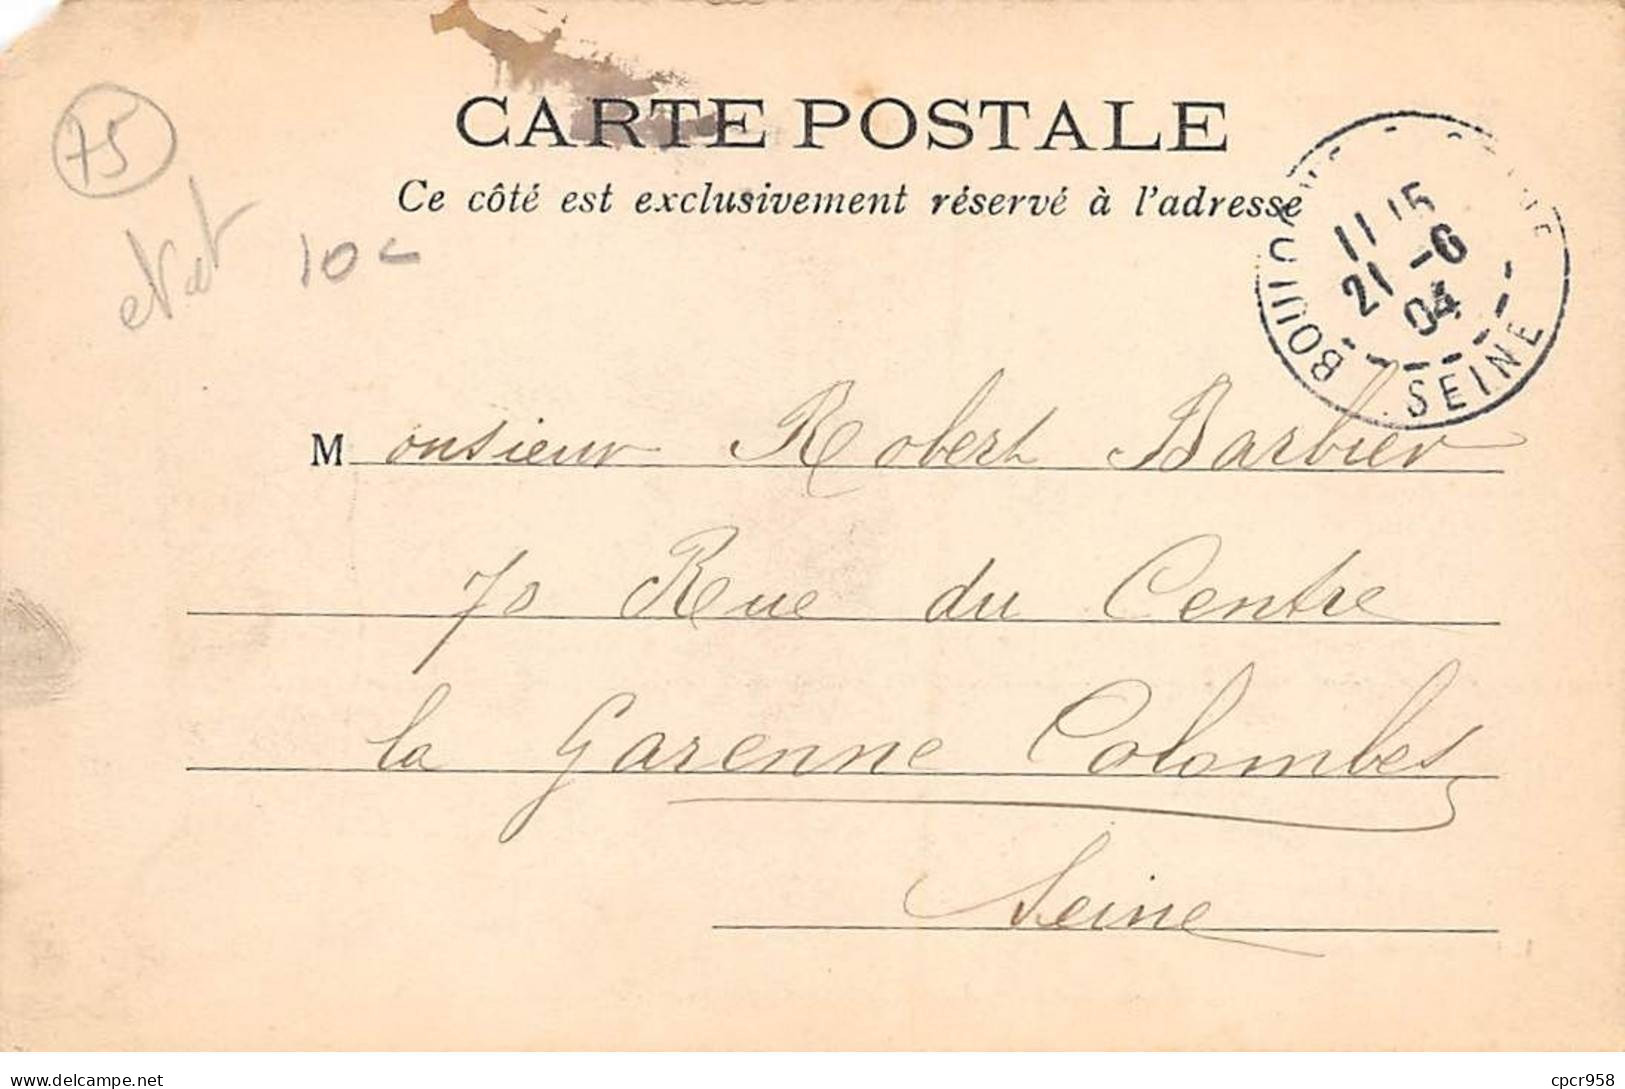 75
CARTE POSTALE
Ce côté est exclusivement réservé à l'adresse
etat
10 c
11 15
21 -6
04
SEINE
Monsieur Robert Barbier
70 Rue du Centre
la Garenne Colombes
Seine
delcampe.net
cpcr958